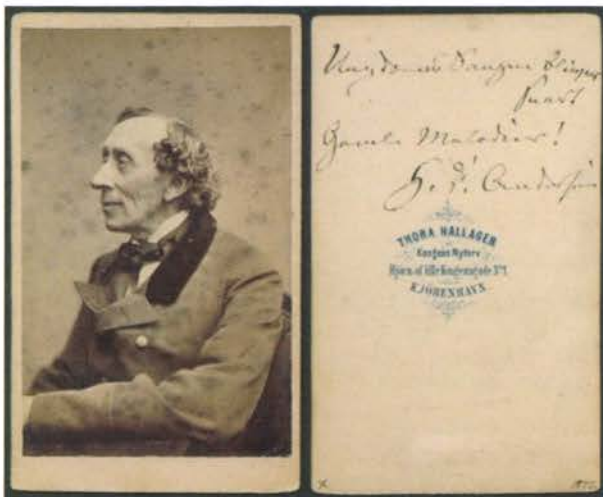 Ungdoms Sangen bliver
snart
Gamle Melodier!
H. C. Andersen
THORA HALLAGER
Kongens Nytorv
Hjørn. af lille Kongensgade No 1
KJØBENHAVN.
x